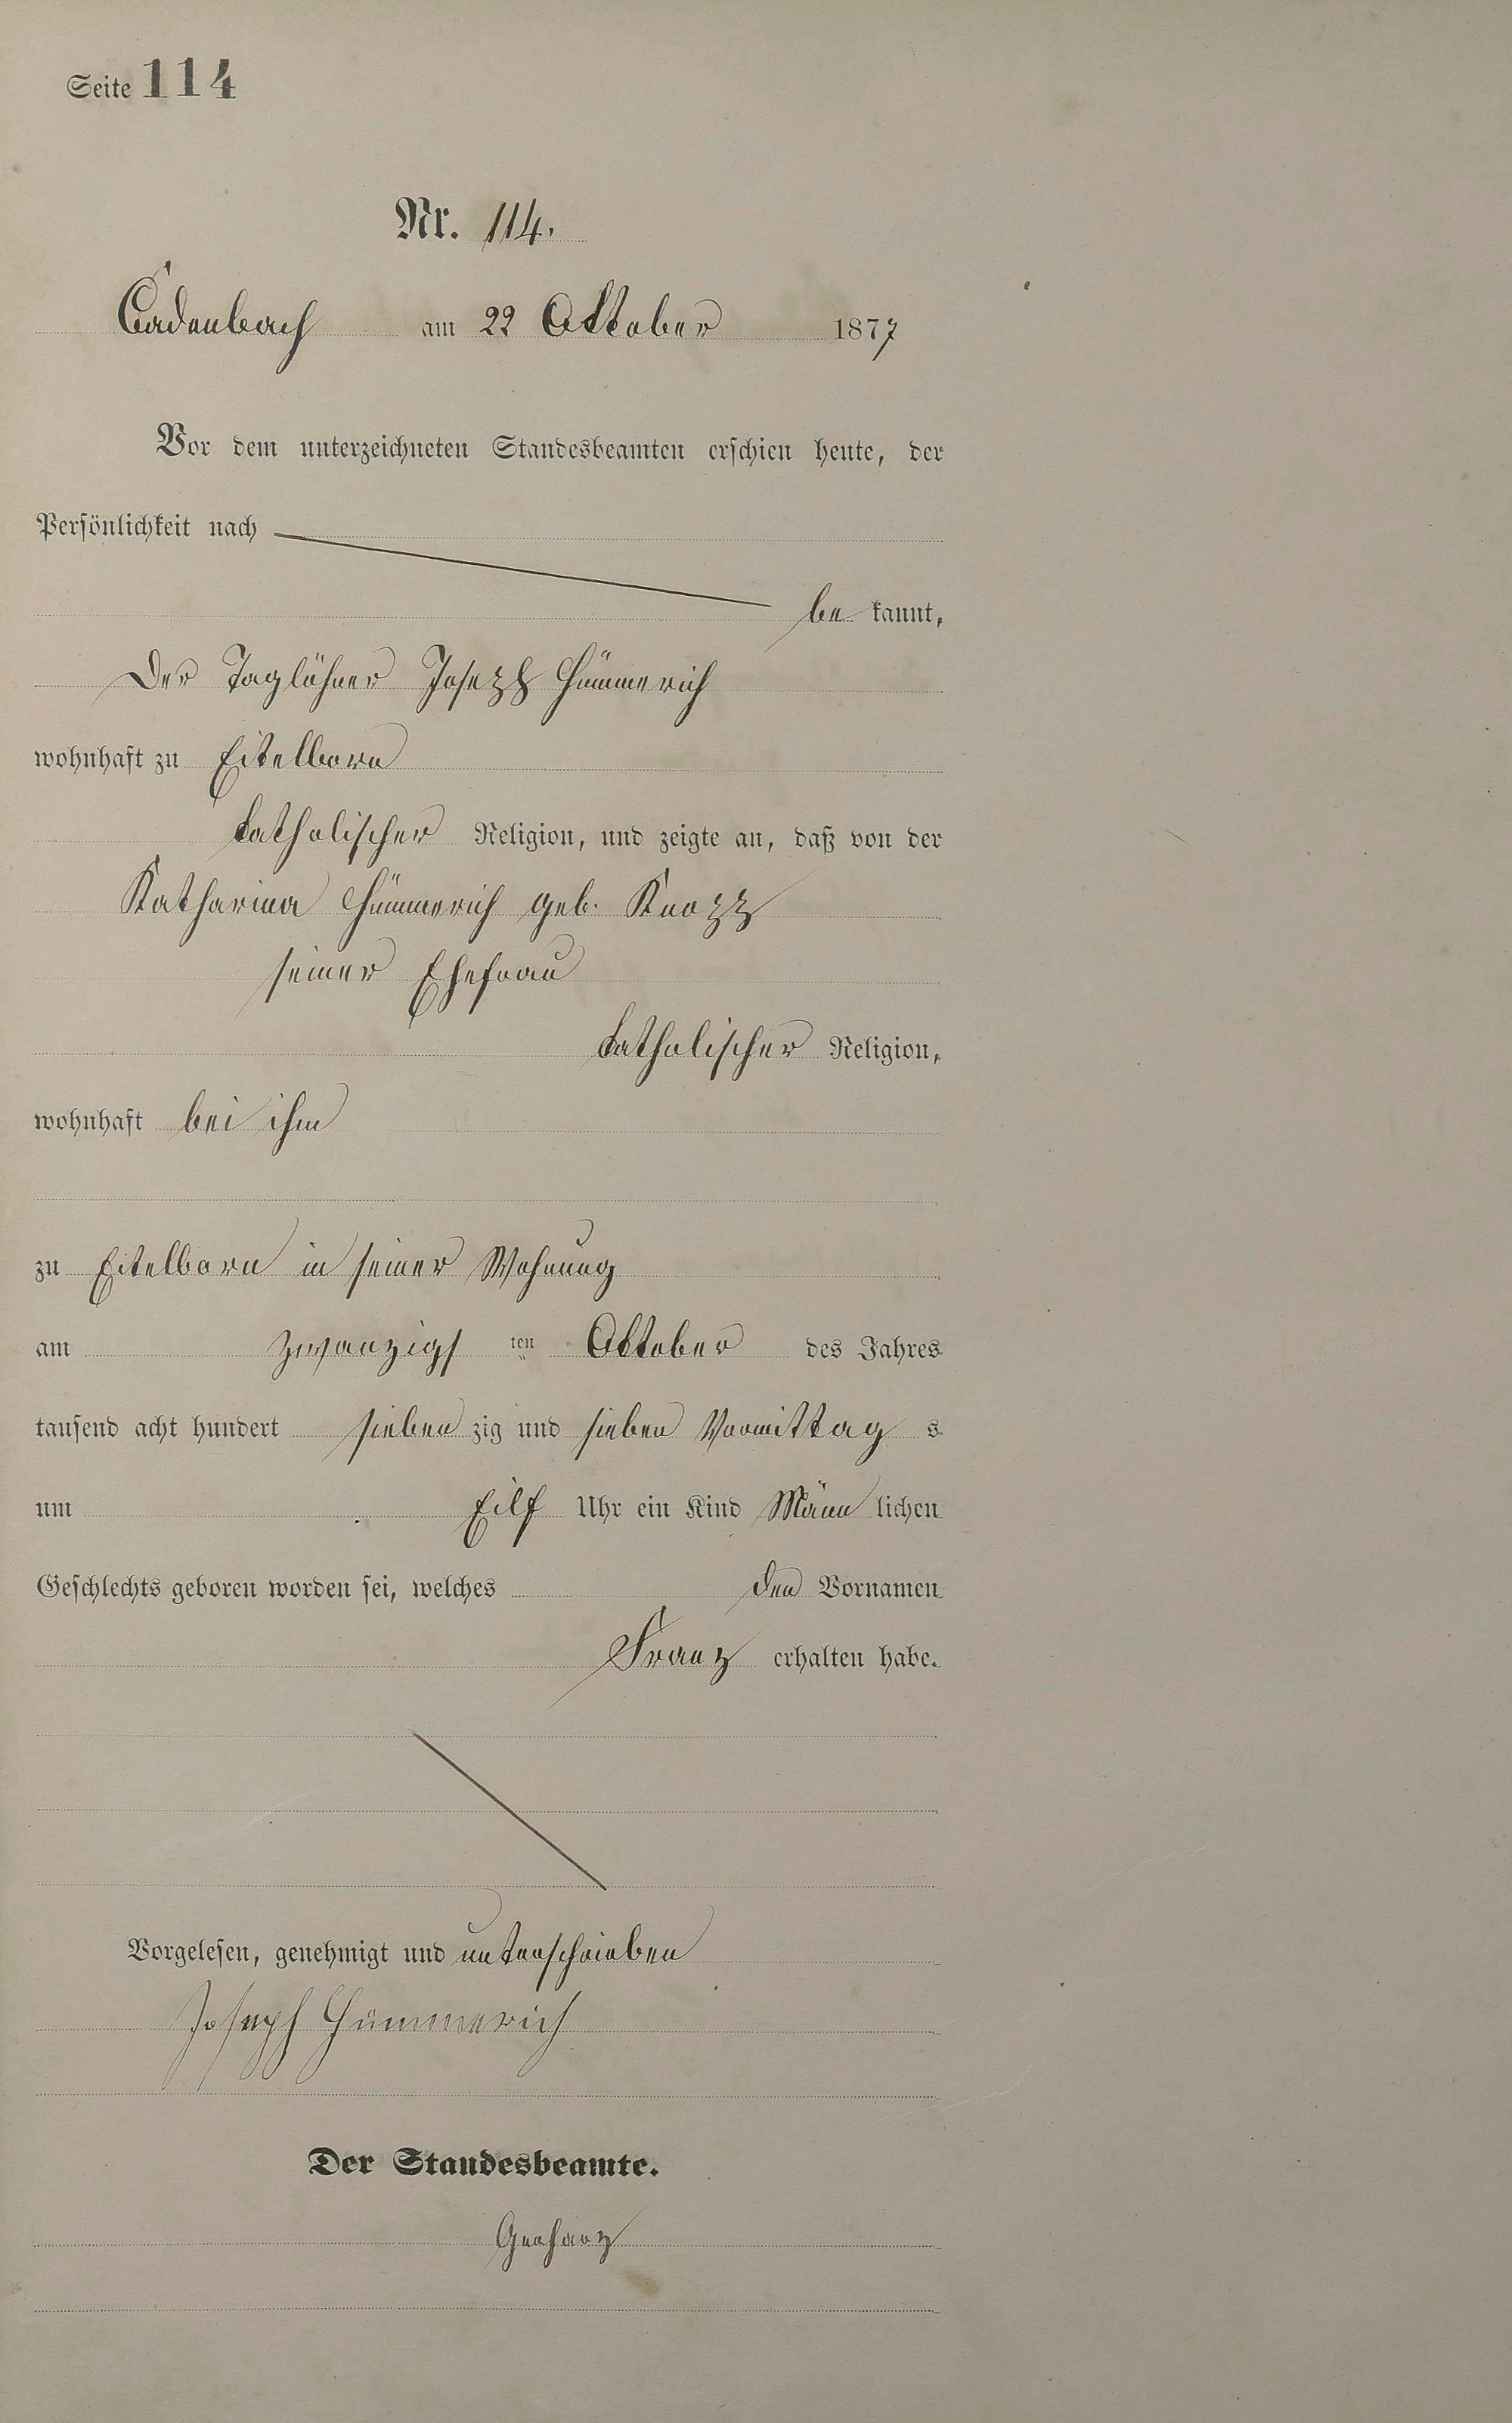 Seite 114
Nr. 114.
Cadenbach am 22 Oktober 1877
Vor dem unterzeichneten Standesbeamten erschien heute, der
Persönlichkeit nach
be kannt,
Der Taglöhner Joseph Hümmerich
wohnhaft zu Eitelborn
katholischer Religion, und zeigte an, daß von der
Katharina Hümmerich geb. Knopp
seiner Ehefrau
katholischer Religion,
wohnhaft bei ihm
zu Eitelborn in seiner Wohnung
am zwanzigs ten Oktober des Jahres
tausend acht hundert sieben zig und sieben Vormittag s
um Eilf Uhr ein Kind Männ lichen
Geschlechts geboren worden sei, welches den Vornamen
Franz erhalten habe.
Vorgelesen, genehmigt und unterschrieben
Joseph Hümmerich
Der Standesbeamte.
Gerharz